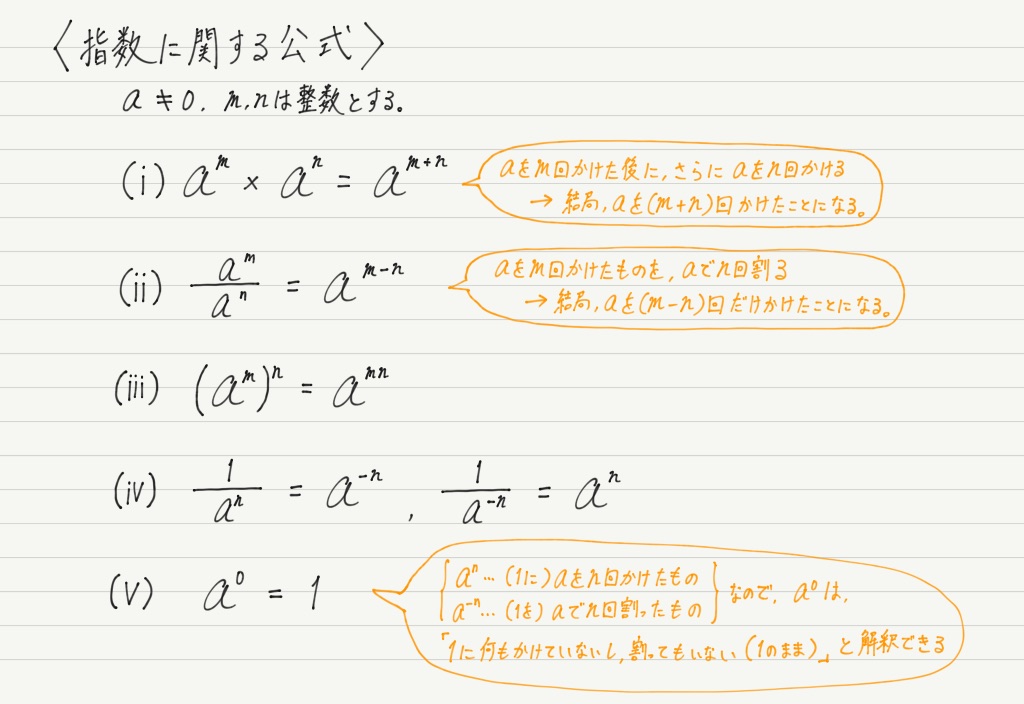 〈指数に関する公式〉
a ≠ 0, m, nは整数とする。
(i) a^m × a^n = a^{m+n}
aをm回かけた後に,さらにaをn回かける
→ 結局,aを(m+n)回かけたことになる。
(ii) a^m/a^n = a^{m-n}
aをm回かけたものを,aでn回割る
→ 結局,aを(m-n)回だけかけたことになる。
(iii) (a^m)^n = a^{mn}
(iv) 1/a^n = a^{-n} , 1/a^{-n} = a^n
(v) a^0 = 1
a^n… (1に)aをn回かけたもの
a^{-n}… (1を)aでn回割ったもの
なので, a^0は,
「1に何もかけていないし,割ってもいない(1のまま)」と解釈できる